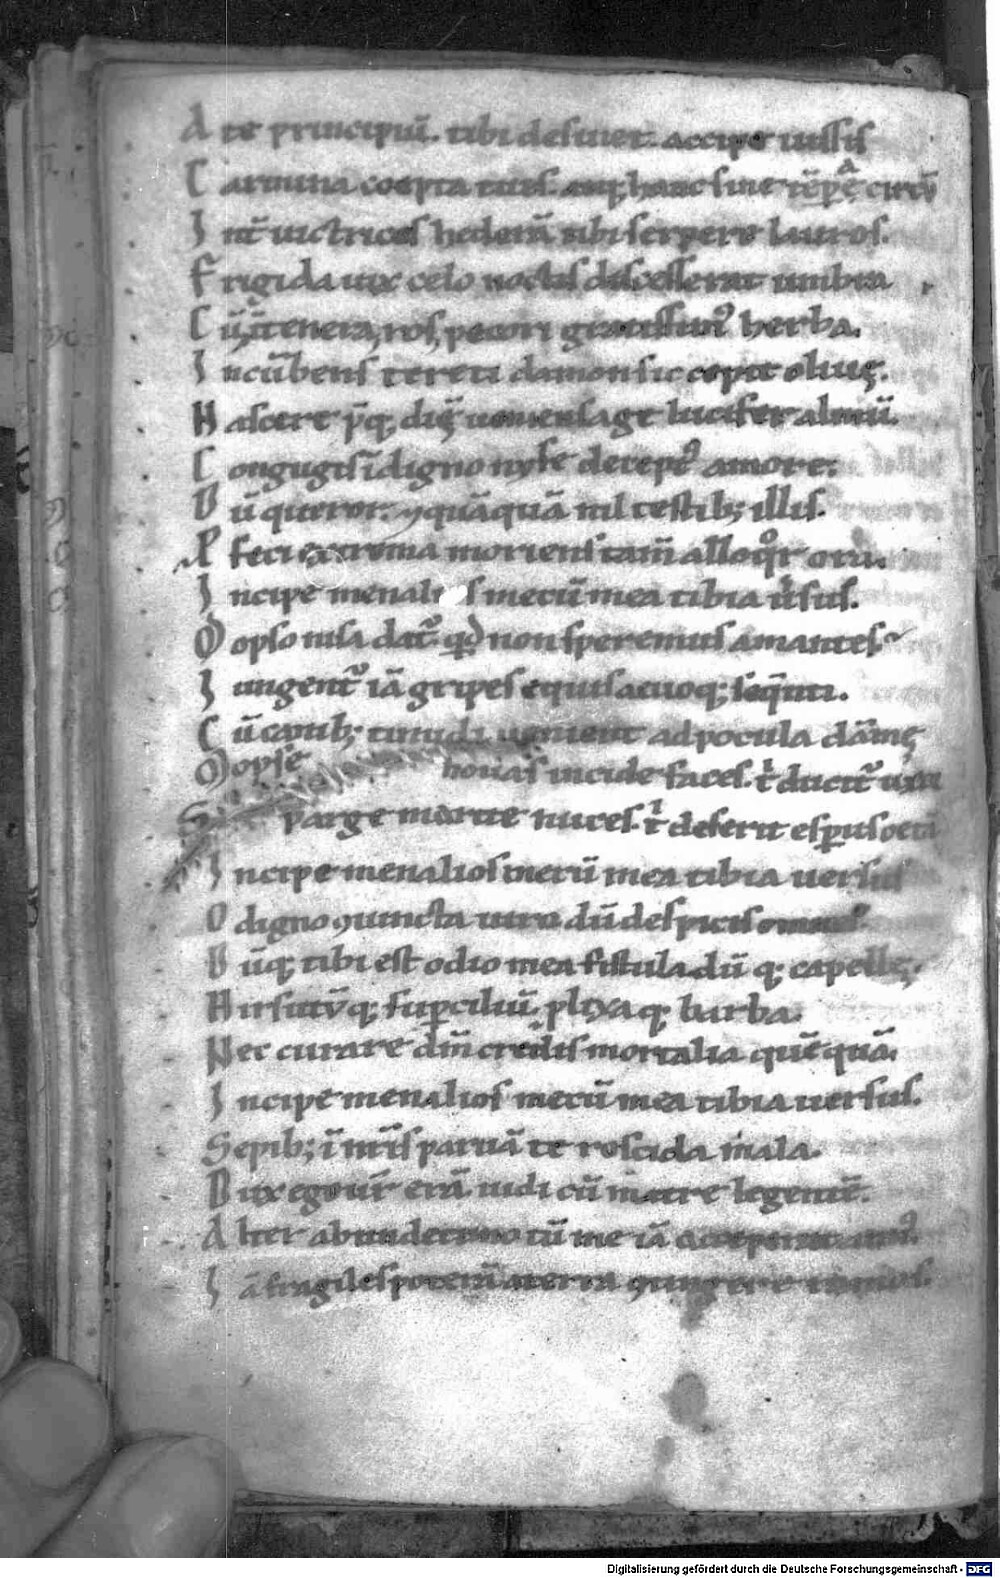 A te principiū. tibi desinet. accipe iussis
C armina coepta tuis. atq; hanc sine tēpa circū
I nt̄ uictrices hederā tibi serpere lauros.
F rigida uix celo noctis discesserat umbra
C ū ī tenera ros pecori gratissimꝰ herba.
I ncūbens tereti damon sic cepit oliuę.
N ascere p̄q; diē ueniens age lucifer almū.
C oniugis īdigno nyse deceptꝰ amore.
D ū queror. ⁊ quāquā nil testib; illis
P feci extrema moriens tam̄ alloqͦr ora.
I ncipe menalios mecū mea tibia uͥsus.
M opso nisa dat᷑. qͥd non speremus amantes.
I ungent᷑ iā gripes equis. euoq; seq̄nti.
C ū canib; timidi uenient ad pocula dāmę
M opse nouas incide faces. tͥ ducit᷑ uxor
S parge marite nuces. tͥ deserit esperus oetā
I ncipe menalios mecū mea tibia uersus
O digno ꝯiuncta uiro dū despicis omnes
D ūq; tibi est odio mea fistula. dū q; capellę.
H irsutūq; supciliū. plixaq; barba.
N ec curare dm̄ credis mortalia quēquā.
I ncipe menalios mecū mea tibia uersus.
S epib; ī nr̄is paruā te roscida mala.
D ux ego ur̄ erā. uidi cū matre legentē.
A lter ab undecimo tū me iā acceperat annꝰ.
I ā fragiles poterā a terra ꝯtingere ramos.
Digitalisierung gefördert durch die Deutsche Forschungsgemeinschaft - DFG